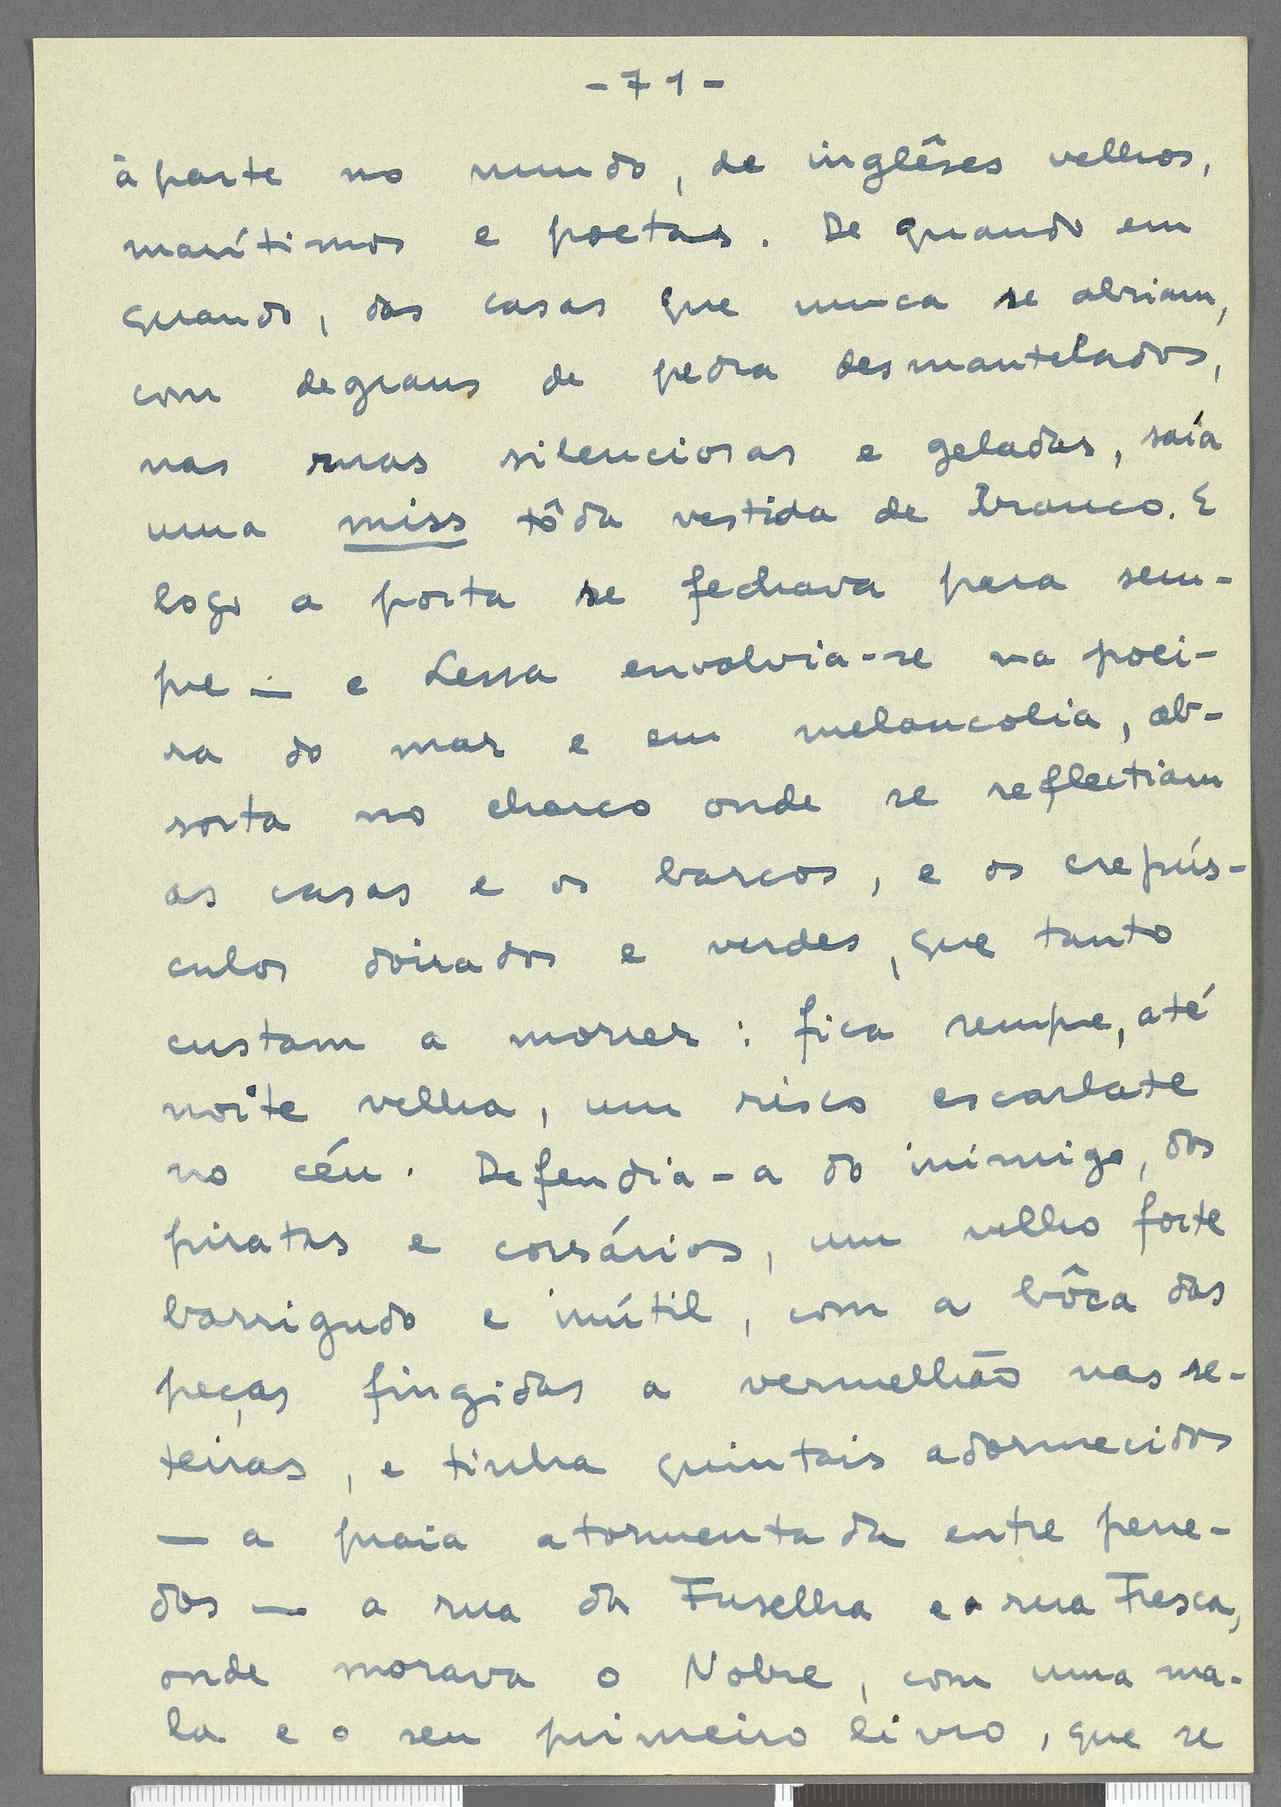 - 71 -
à parte no mundo, de inglêses velhos,
marítimos e poetas. De quando em
quando, das casas que nunca se abriam,
com degraus de pedra desmantelados,
nas ruas silenciosas e geladas, saía
uma miss tôda vestida de branco. E
logo a porta se fechava para sem-
pre — e Lessa envolvia-se na poei-
ra do mar e em melancolia, ab-
sorta no charco onde se reflectiam
as casas e os barcos, e os crepús-
culos doirados e verdes, que tanto
custam a morrer: fica sempre, até
noite velha, um risco escarlate
no céu. Defendia-a do inimigo, dos
piratas e corsários, um velho forte
barrigudo e inútil, com a bôca das
peças fingidas a vermelhão nas se-
teiras, e tinha quintais adormecidos
— a praia atormentada entre pene-
dos — a rua da Fuselha e a rua Fresca,
onde morava o Nobre, com uma ma-
la e o seu primeiro livro, que se